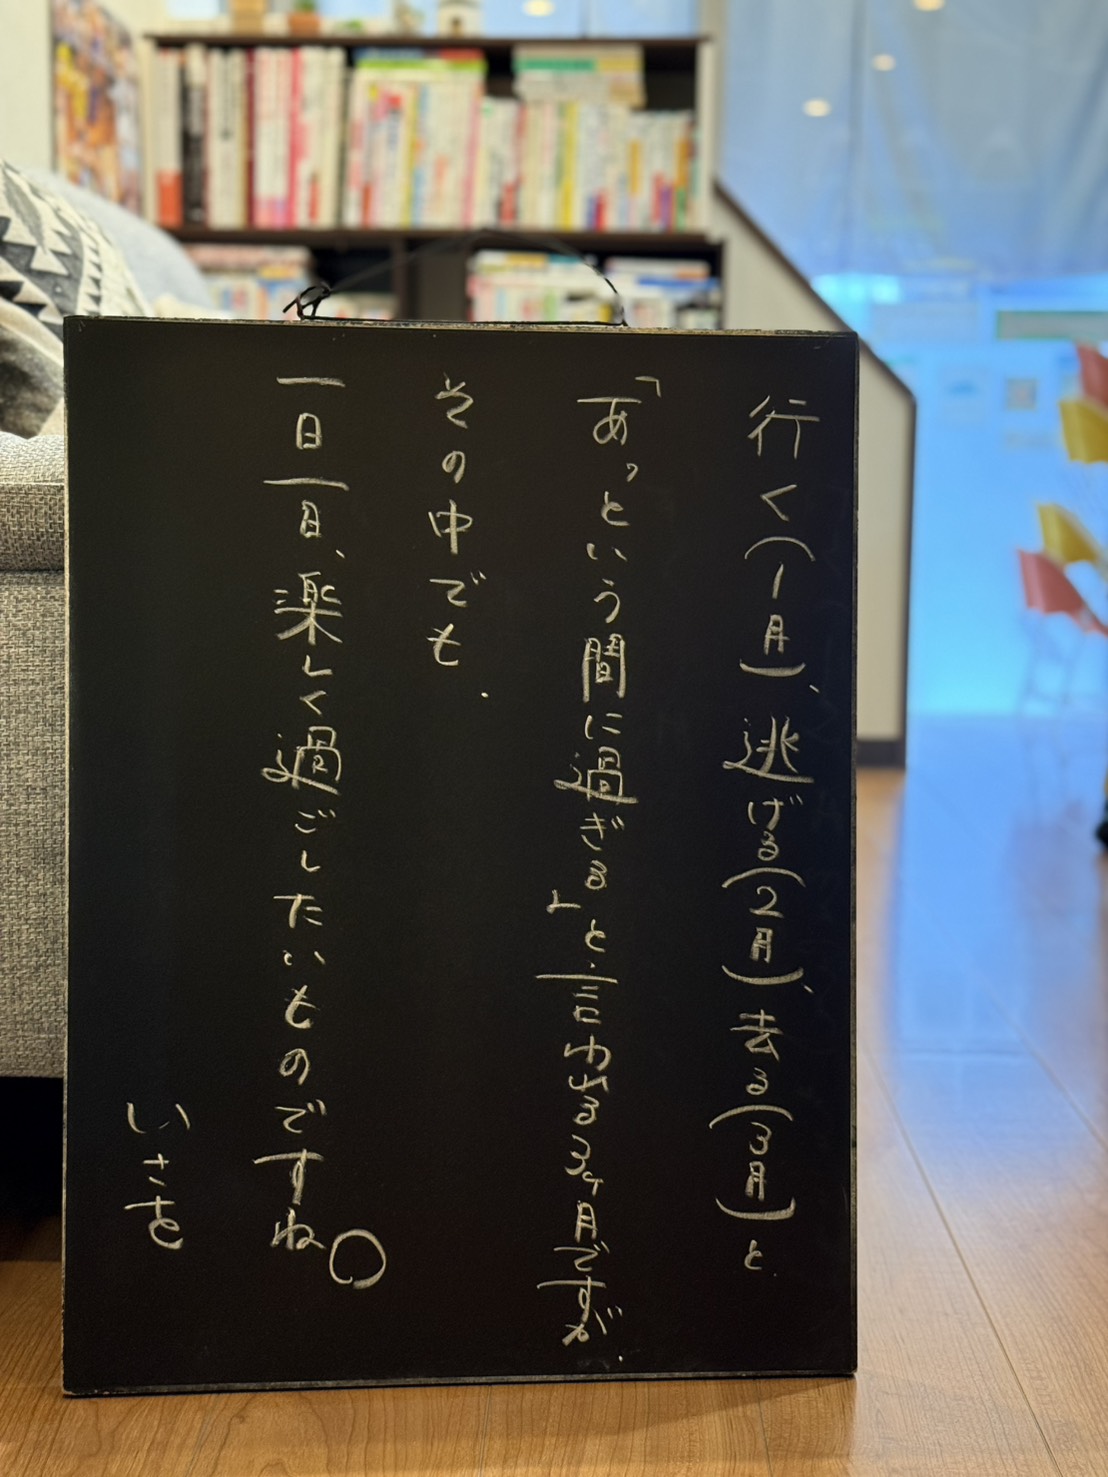 行く(1月)、逃げる(2月)、去る(3月)と
「あっという間に過ぎる」と言われる3ヶ月ですが、
その中でも、
一日一日、楽しく過ごしたいものですね。
いさを